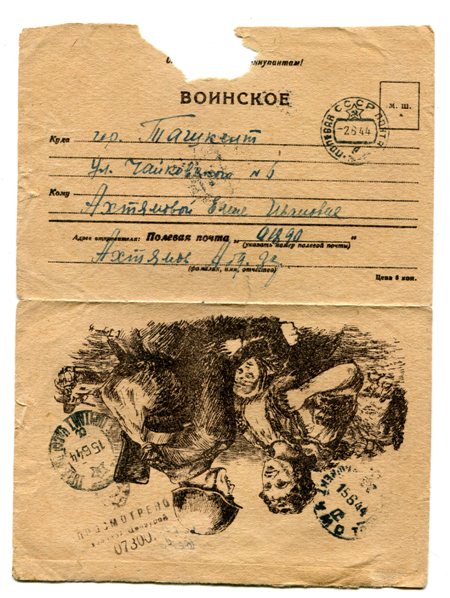 ккупантам!
ВОИНСКОЕ
ПОЛЕВАЯ ПОЧТА СССР
-2.6.44
М. Ш.
Куда гор. Ташкент
ул. Чайковского № 6
Кому
Ахтямовой Елене
Адрес отправителя: Полевая почта „ "
(указать номер полевой почты)
Ахтямов
(фамилия, имя, отчество)
Цена 5 коп.
15644
15644
ПРОСМОТРЕНО
Военной Цензурой
07300